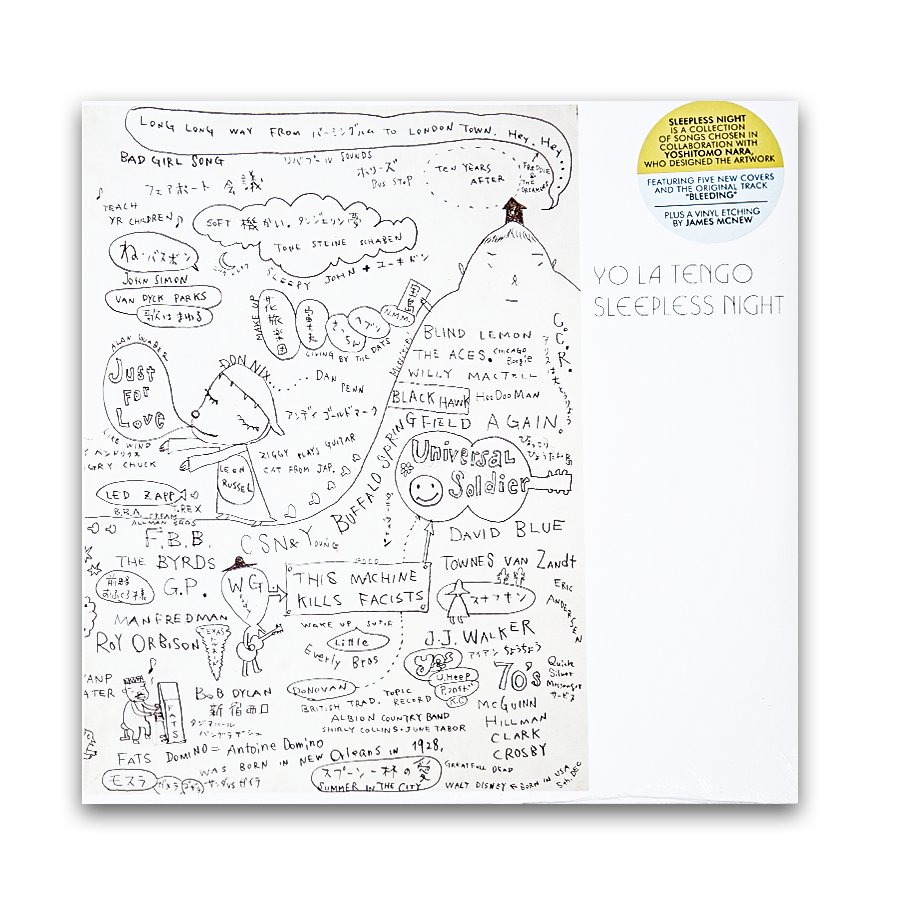 LONG LONG WAY FROM バーミンガム TO LONDON TOWN. Hey. Hey.
BAD GIRL SONG
リバプール SOUNDS
ホリーズ
BUS STOP
TEN YEARS
AFTER
FREDDIE
&
THE
DREAMERS
フェアポート 会議
TEACH
YR CHILDREN
SOFT 機かい。タンジェリン夢
TONE STEINE SCHABEN
SLEEPY JOHN + ユーキボン
ね・パスポン
JOHN SIMON
VAN DYCK PARKS
歌はまわる
MAKE UP
花旅楽団
富士夫
N.M.M.
LIVING BY THE DAYS
ALAN
Just
For
Love
DON NIX......
DAN
PENN
アンディ ゴールドマーク
ZIGGY PLAYS GUITAR
CAT FROM JAP.
LIKE WIND
ヘンドリクス
GRY CHUCK
LEON
RUSSEL
LED ZAPP
B.B.A. CREAM T.REX
ALLMAN BROS
F.B.B.
THE BYRDS
G.P.
CSN & YOUNG
BUFFALO SPRINGFIELD AGAIN.
BLIND LEMON
THE ACES. CHICAGO
Boogie
WILLY MACTELL
BLACK HAWK HooDooMAN
C.C.R.
Universal
Soldier
DAVID BLUE
TOWNES VAN Zandt
ERIC
ANDERSEN
WG
THIS MACHINE
KILLS FACISTS
WAKE UP SUZIE
Little
Everly Bros
J.J. WALKER
アイアン ちょうちょう
yes
U.HEEP
K.C
70's
Quick
Silver
Messenger
サービス
MANFREDMAN
ROY ORBISON
TEXAS
BOB DYLAN
新宿西口
タジマハール
バングラデシュ
DONOVAN
TOPIC
BRITISH TRAD. RECORD
ALBION COUNTRY BAND
SHIRLY COLLINS + JUNE TABOR
McGUINN
HILLMAN
CLARK
CROSBY
'ANP
ATER
FATS
FATS DOMINO = Antoine Domino
WAS BORN IN NEW Orleans IN 1928,
モスラ
ガメラ
サンダ vs ガイラ
スプーン一杯の愛
SUMMER IN THE CITY
GREATFULL DEAD
WALT DISNEY BORN IN USA
5th, DEC
SLEEPLESS NIGHT
IS A COLLECTION
OF SONGS CHOSEN IN
COLLABORATION WITH
YOSHITOMO NARA,
WHO DESIGNED THE ARTWORK
FEATURING FIVE NEW COVERS
AND THE ORIGINAL TRACK
"BLEEDING"
PLUS A VINYL ETCHING
BY JAMES MCNEW
YO LA TENGO
SLEEPLESS NIGHT